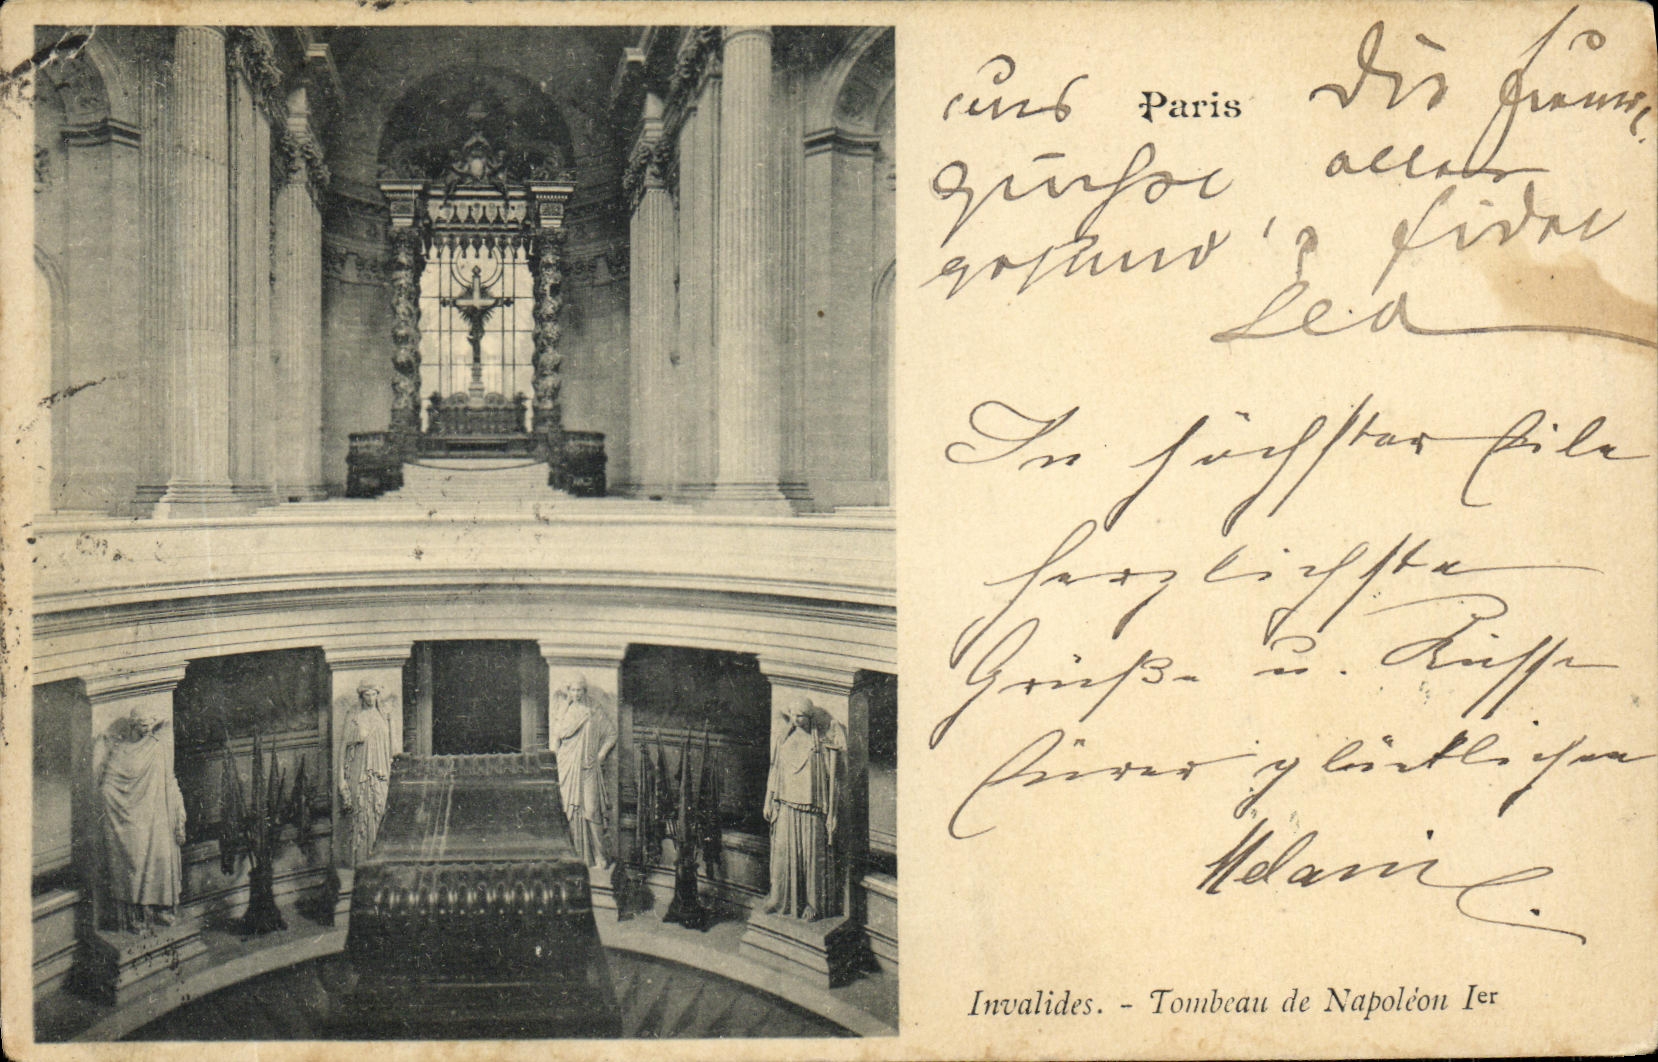 uns Paris Die
grüße alle
gesund
Lea
In höchster Eile
herzlichste
Grüße u. Küsse
Eurer glücklichen
Melanie
Invalides. - Tombeau de Napoléon Ier